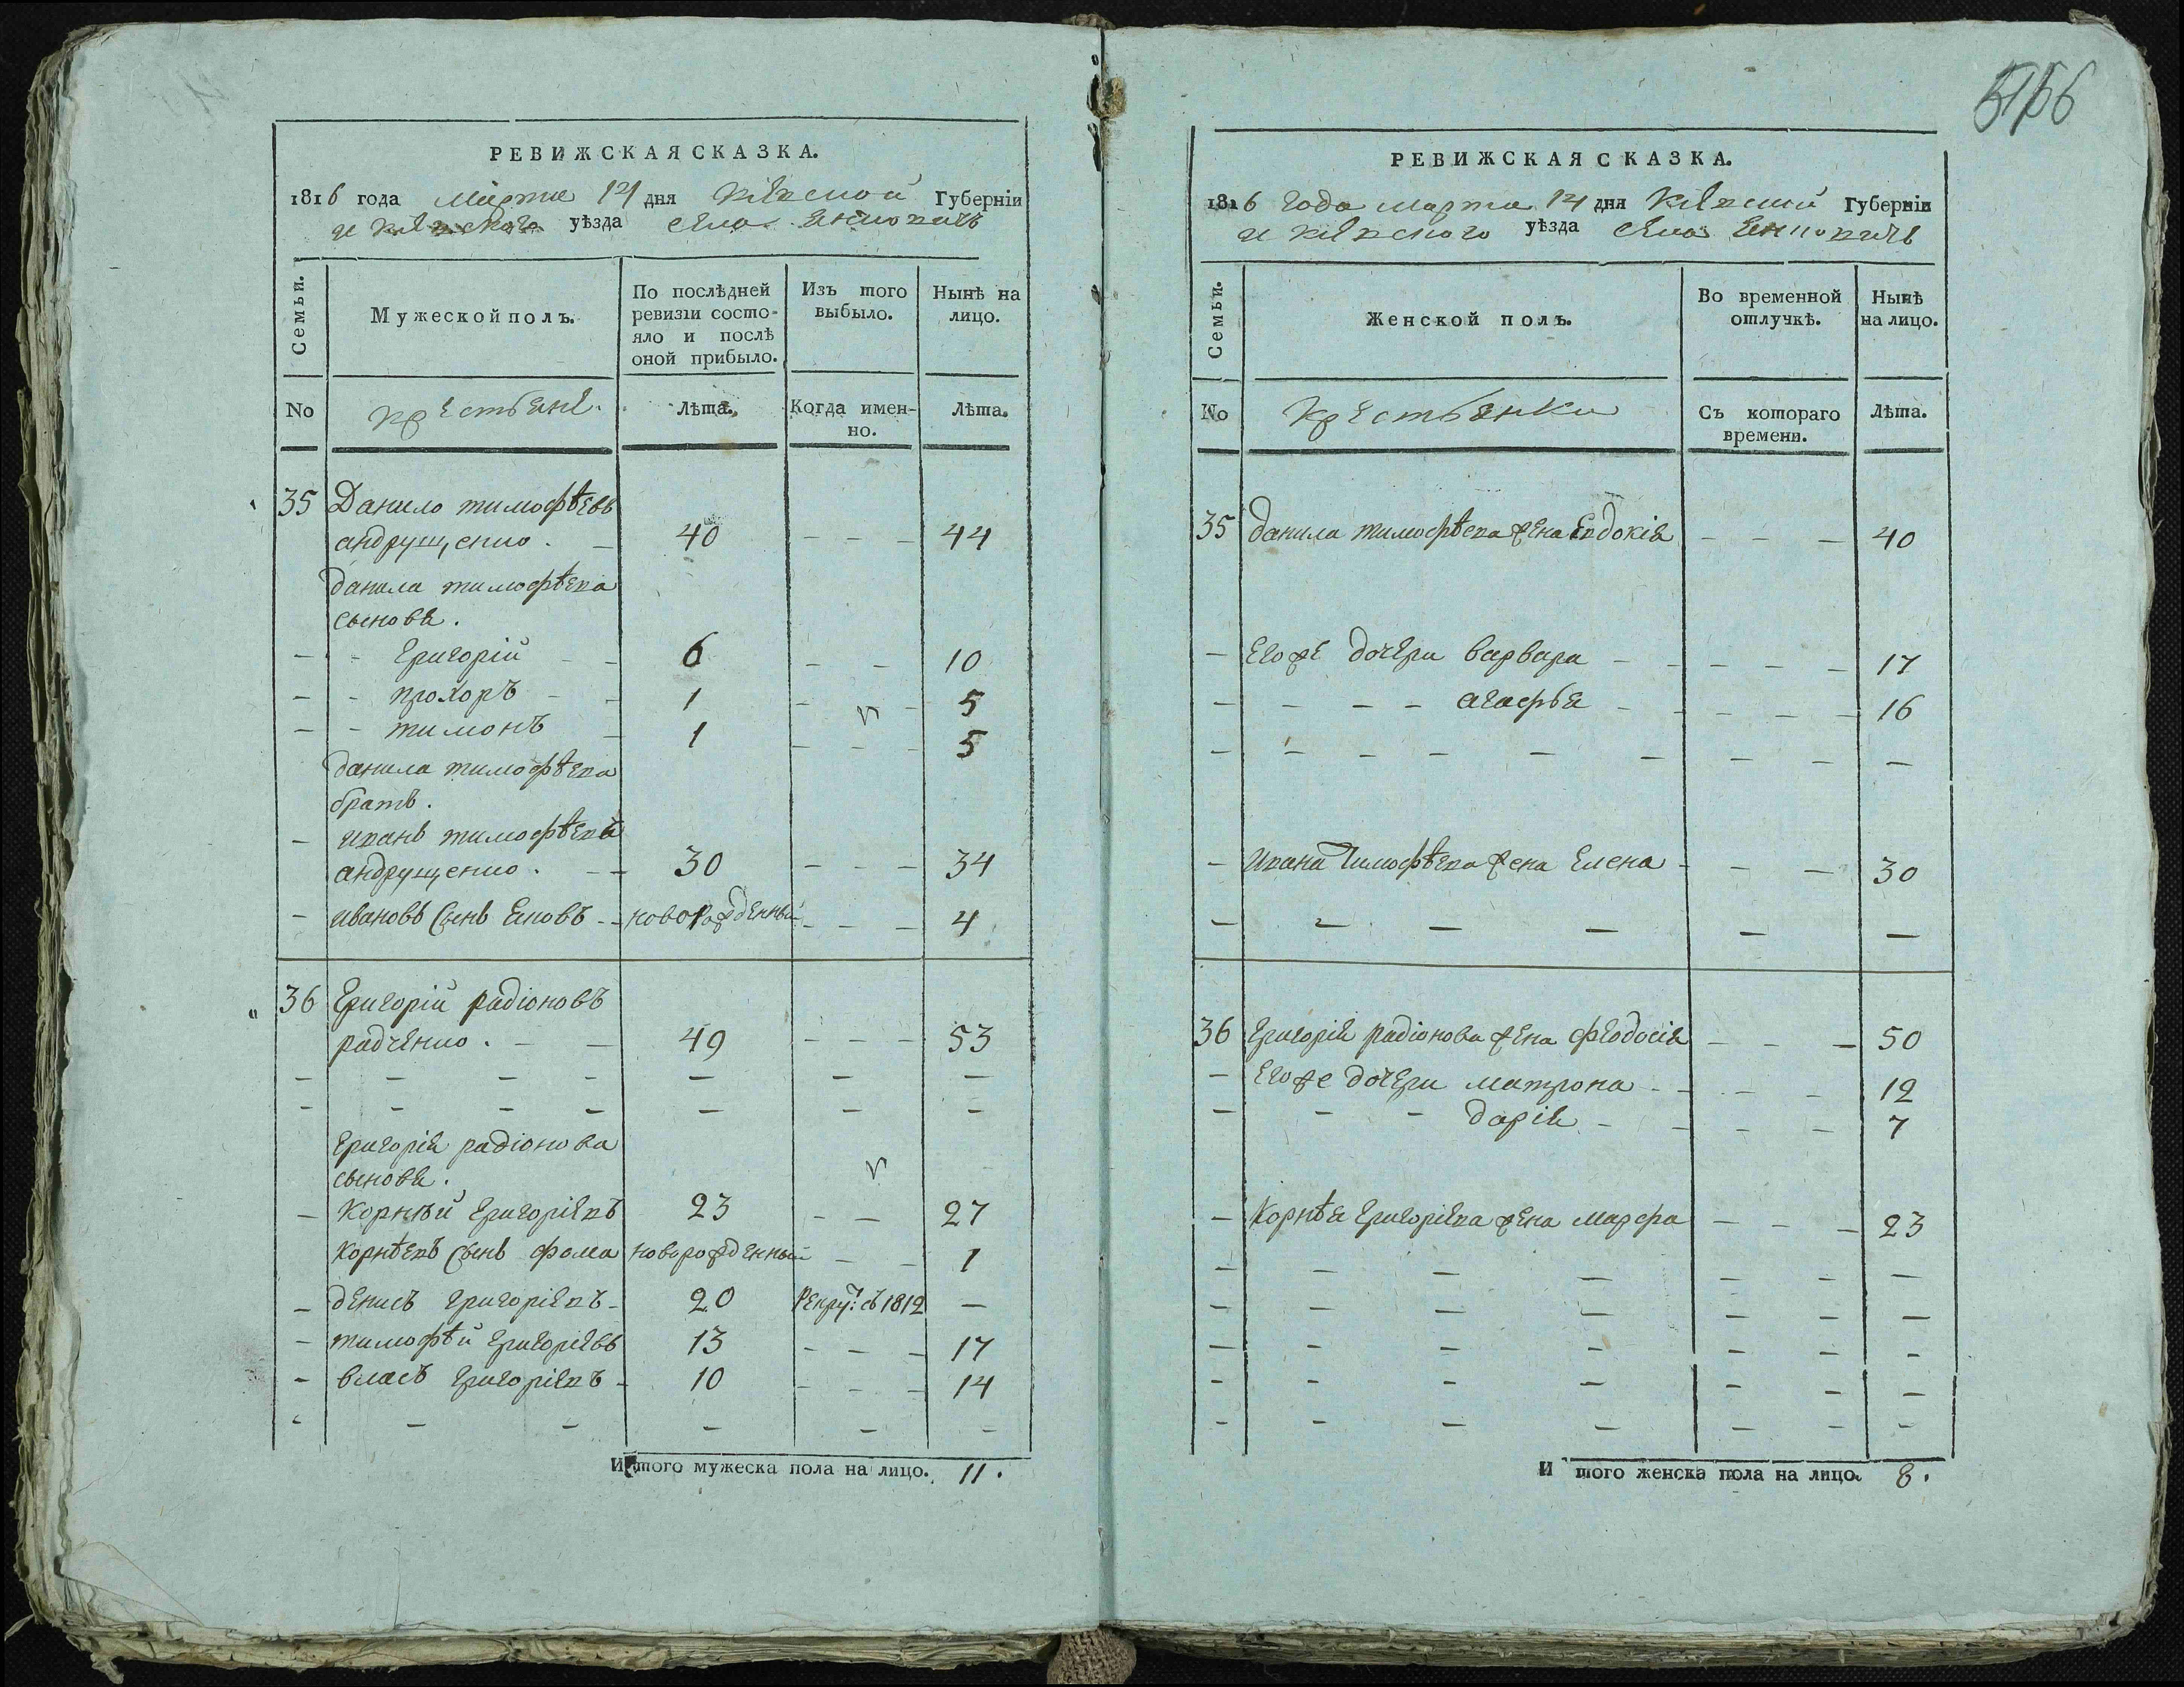 РЕВИЖСКАЯ СКАЗКА.
1816 года Марта 14 дня Киевской Губернїи
и Киевского уѣзда села
Семьи.
Мужеской полъ.
По послѣдней ревизїи состояло и послѣ оной прибыло.
Изъ того выбыло.
Нынѣ на лицо.
No
крестьяне.
Лѣта.
Когда именно.
Лѣта.
35 Данило тимофѣевъ
андрущенко. 40 – – – 44
данила тимофѣева
сыновя.
– – Григорій – – 6 – – 10
– – прохоръ – – 1 – – 5
– – тимонъ – 1 – – – 5
данила тимофѣева
братъ.
– иванъ тимофѣевъ
андрущенко. – – 30 – – – 34
– ивановъ сынъ Яковъ – – новорожденный – – – 4
36 Григорій радіоновъ
радченко. – – 49 – – – 53
– – – – – – –
– – – – – – –
Григорія радіонова
сыновя.
– Корнѣй Григоріевъ 23 – – 27
Корнѣевъ сынъ фома новорожденный – – 1
– денисъ Григоріевъ – 20 Рекрут: съ 1812 –
– тимофѣй Григоріевъ 13 – – – 17
– власъ Григоріевъ – 10 – – – 14
– – – – – –
И того мужеска пола на лицо. 11.
5166
РЕВИЖСКАЯ СКАЗКА.
1816 года марта 14 дня Киевской Губернїи
и Киевского уѣзда села
Семьи.
Женской полъ.
Во временной отлучкѣ.
Нынѣ на лицо.
No
Крестьянки
Съ котораго времени.
Лѣта.
35 данила тимофѣева жена Евдокія – – – 40
– Егоже дочери варвара – – – – – 17
– – – – агафья – – – – – 16
– – – – – – – – –
– Ивана Тимофѣева жена Елена – – – 30
– – – – – –
36 Григорія радіонова жена феодосія – – – 50
– Егоже дочери матрона – – – – 12
– – – дарія – – – – 7
– Корнѣя Григоріева жена марфа – – – 23
– – – – – – –
– – – – – – –
– – – – – – –
– – – – – – –
– – – – – – –
И того женска пола на лицо. 8.